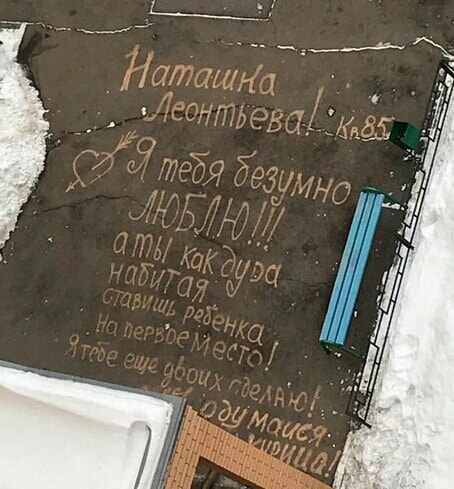 Наташка
Леонтьева! Кв85
Я тебя безумно
ЛЮБЛЮ!!!
а ты как дура
набитая
ставишь ребенка
на первое место!
Я тебе еще двоих сделаю!
одумайся
курица!